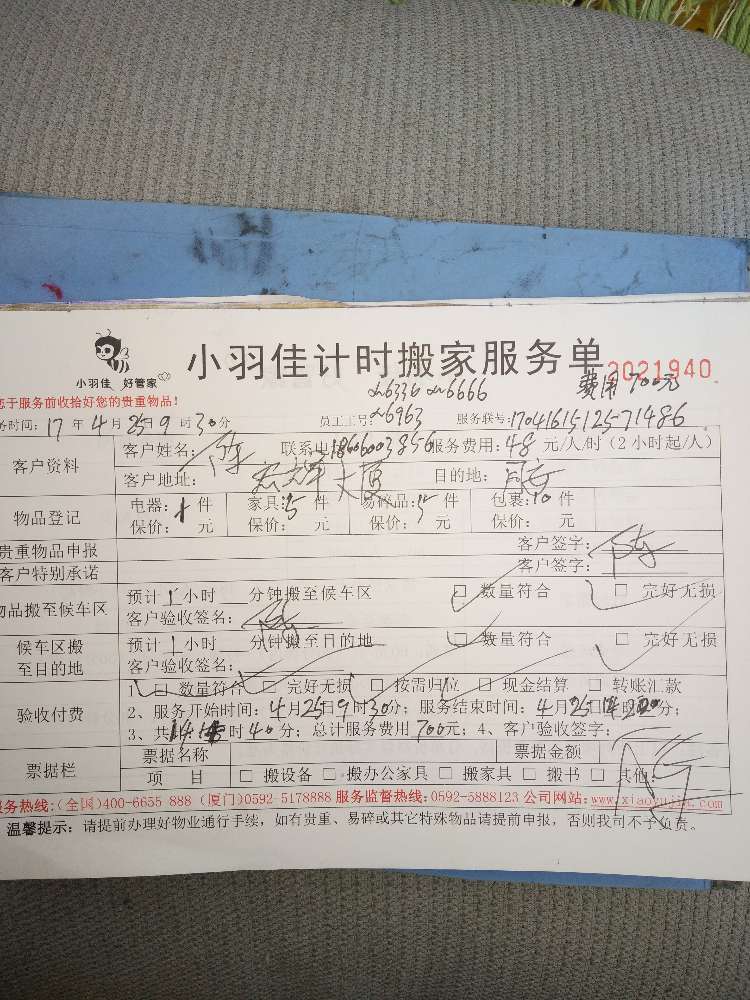 小羽佳 好管家
小羽佳计时搬家服务单
2021940
费用700元
您于服务前收拾好您的贵重物品!
6336 6666
务时间:17年4月25日9时30分 员工工号: 6963 服务联号:1704161512571486
客户资料
客户姓名:陈 联系电 18606003856 服务费用:48元/人/时(2小时起/人)
客户地址: 宏辉大厦 目的地:同安
物品登记
电器:1件 家具:5件 易碎品:5件 包裹:10件
保价: 元 保价: 元 保价: 元 保价: 元
贵重物品申报 客户签字:
客户特别承诺 客户签字:陈
物品搬至候车区
预计1小时___分钟搬至候车区 □ 数量符合 □ 完好无损
客户验收签名:陈
候车区搬至目的地
预计1小时___分钟搬至目的地 □ 数量符合 □ 完好无损
客户验收签名:
验收付费
1、□ 数量符合 □ 完好无损 □ 按需归位 □ 现金结算 □ 转账汇款
2、服务开始时间:4月25日9时30分;服务结束时间:4月25日 分;
3、共 时40分;总计服务费用700元;4、客户验收签字:陈
票据栏
票据名称 票据金额
项 目 □ 搬设备 □ 搬办公家具 □ 搬家具 □ 搬书 □ 其他:
服务热线:(全国)400-6655 888 (厦门)0592-5178888 服务监督热线:0592-5888123 公司网站:www.xiaoyujia.com
温馨提示:请提前办理好物业通行手续,如有贵重、易碎或其它特殊物品请提前申报,否则我司不予负责。